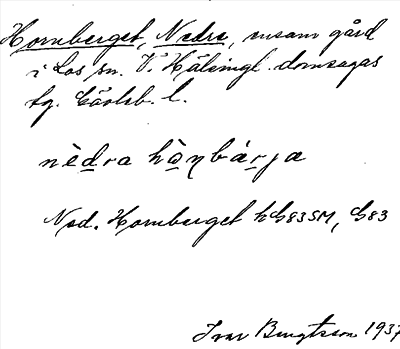 Hornberget, Nedre, ensam gård
i Los sn. V. Hälsingl. domsagas
tg. Gävleb. l.
nèd̲ra hò̲ṇbár̲ja
Ned. Hornberget hG83SM, G83
Ivar Bengtsson 1937